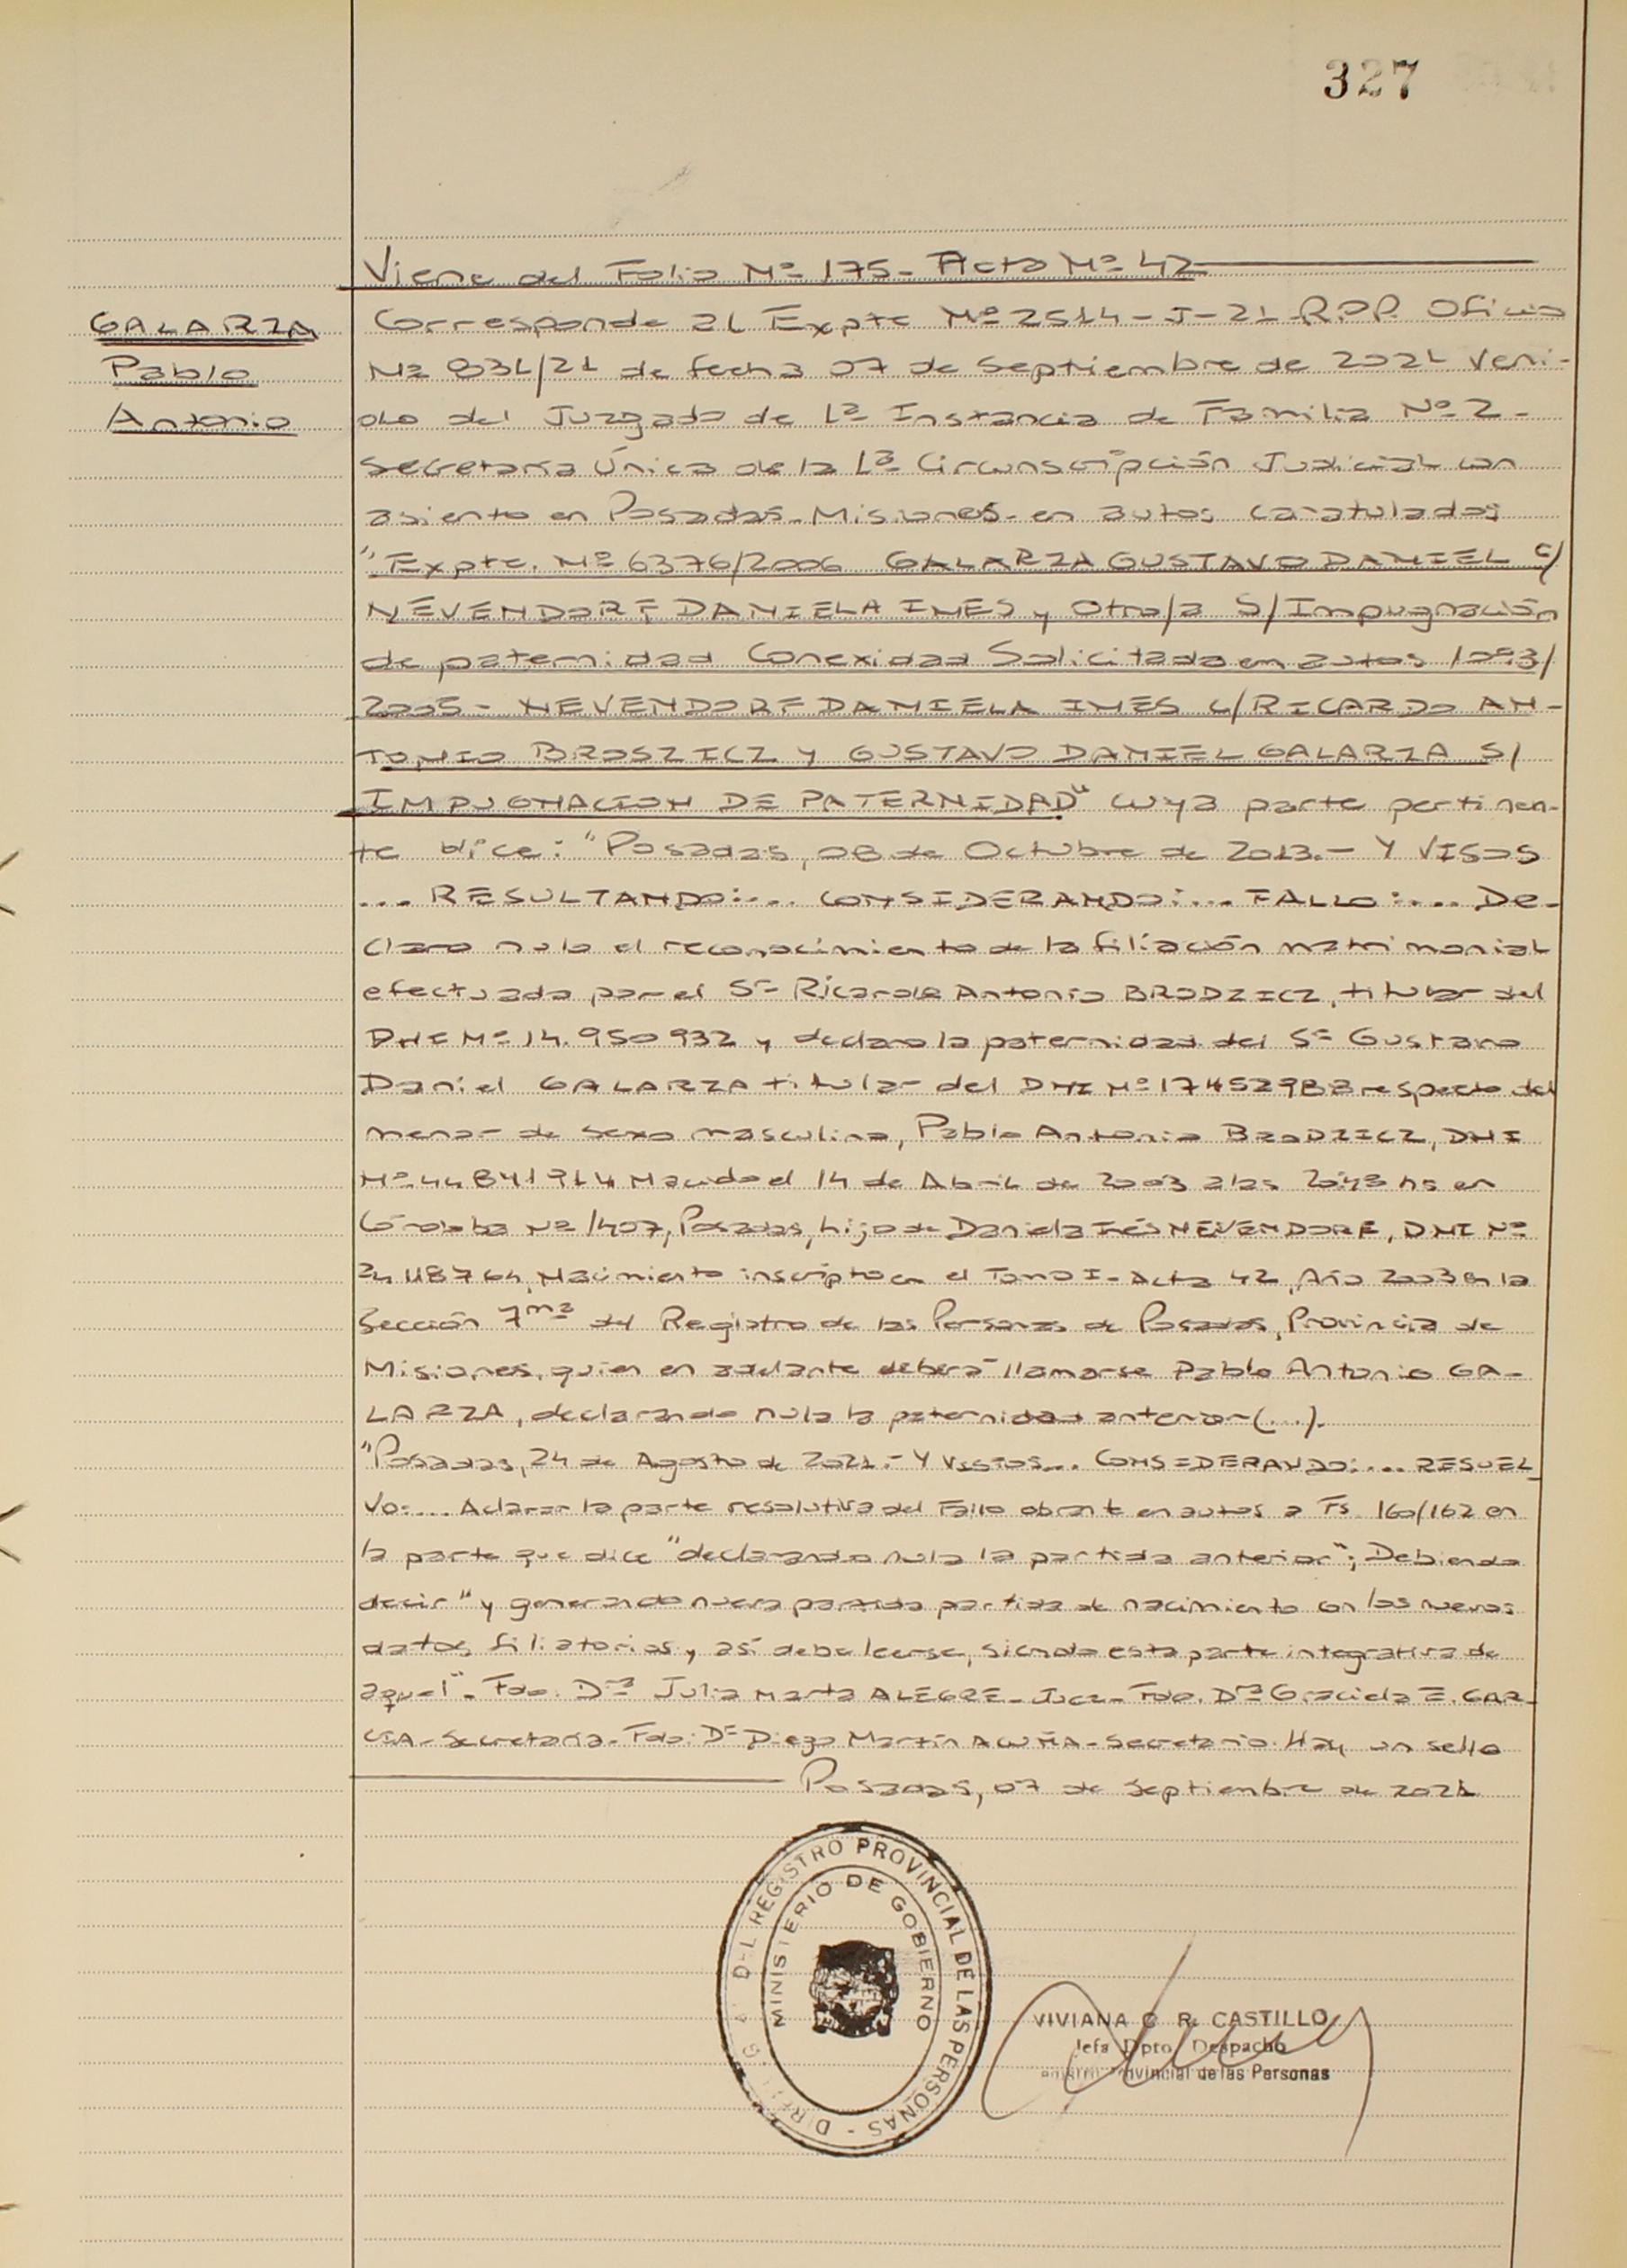 327
Viene del Folio Nº 175- Acta Nº 42
GALARZA
Pablo
Antonio
Corresponde al Expte Nº 2514-J-21-RPP. Oficio
Nº 831/21 de fecha 07 de Septiembre de 2021 Veni-
do del Juzgado de 1ª Instancia de Familia Nº 2-
Secretaría Única de la 1ª Circunscripción Judicial con
asiento en Posadas-Misiones-en autos caratulados
"Expte. Nº 6376/2006 GALARZA GUSTAVO DANIEL c/
NEVENDORF DANIELA INES y Otro/a S/Impugnación
de paternidad Conexidad Solicitada en autos 1093/
2005- NEVENDORF DANIELA INES c/RICARDO AN-
TONIO BROSZICZ Y GUSTAVO DANIEL GALARZA S/
IMPUGNACION DE PATERNIDAD" cuya parte pertinen-
te dice: "Posadas, 08 de Octubre de 2013.- Y VISOS
... RESULTANDO:... CONSIDERANDO:... FALLO:... De-
claro nulo el reconocimiento de la filiación matrimonial
efectuada por el Sr Ricardo Antonio BRODZICZ, titular del
DNI Nº 14.950932 y declaro la paternidad del Sr Gustavo
Daniel GALARZA titular del DNI Nº 17452988 respecto del
menor de sexo masculino, Pablo Antonio BRODZICZ, DNI
Nº 44841914 Nacido el 14 de Abril de 2003 a las 20:43 hs en
Córdoba Nº 1407, Posadas, hijo de Daniela Inés NEVENDORF, DNI Nº
24118764, Nacimiento inscripto en el Tomo I- Acta 42, Año 2003 en la
Sección 7ma del Registro de las Personas de Posadas, Provincia de
Misiones, quien en adelante deberá llamarse Pablo Antonio GA-
LARZA, declarando nula la paternidad anterior (...).
"Posadas, 24 de Agosto de 2021.- Y Vistos... CONSIDERANDO:... RESUEL
VO:... Aclarar la parte resolutiva del Fallo obrante en autos a Fs. 160/162 en
la parte que dice "declarando nula la partida anterior"; Debiendo
decir "y generando nueva partida partida de nacimiento con los nuevos
datos filiatorios y así debe leerse, siendo esta parte integrativa de
aquel". Fdo. Dra Julia Marta ALEGRE-Juez-Fdo. Dra Graciela E. GAR-
CIA-Secretaria-Fdo: Dr Diego Martín ACUÑA-Secretario. Hay un sello
Posadas, 07 de Septiembre de 2021
DEL REGISTRO PROVINCIAL DE LAS PERSONAS -
MINISTERIO DE GOBIERNO
VIVIANA C R. CASTILLO
Jefa Dpto Despacho
Provincial de las Personas